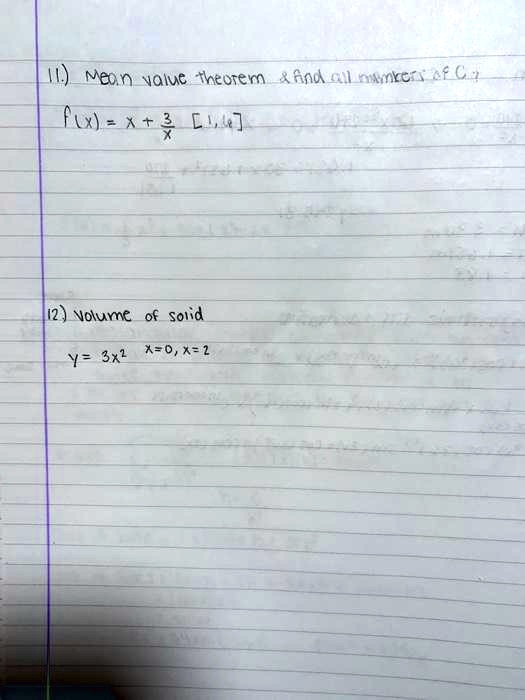 11.) Mean value theorem & find all numbers of C.
f(x) = x + 3/x [1,6]
12) Volume of solid
y = 3x² x=0, x=2